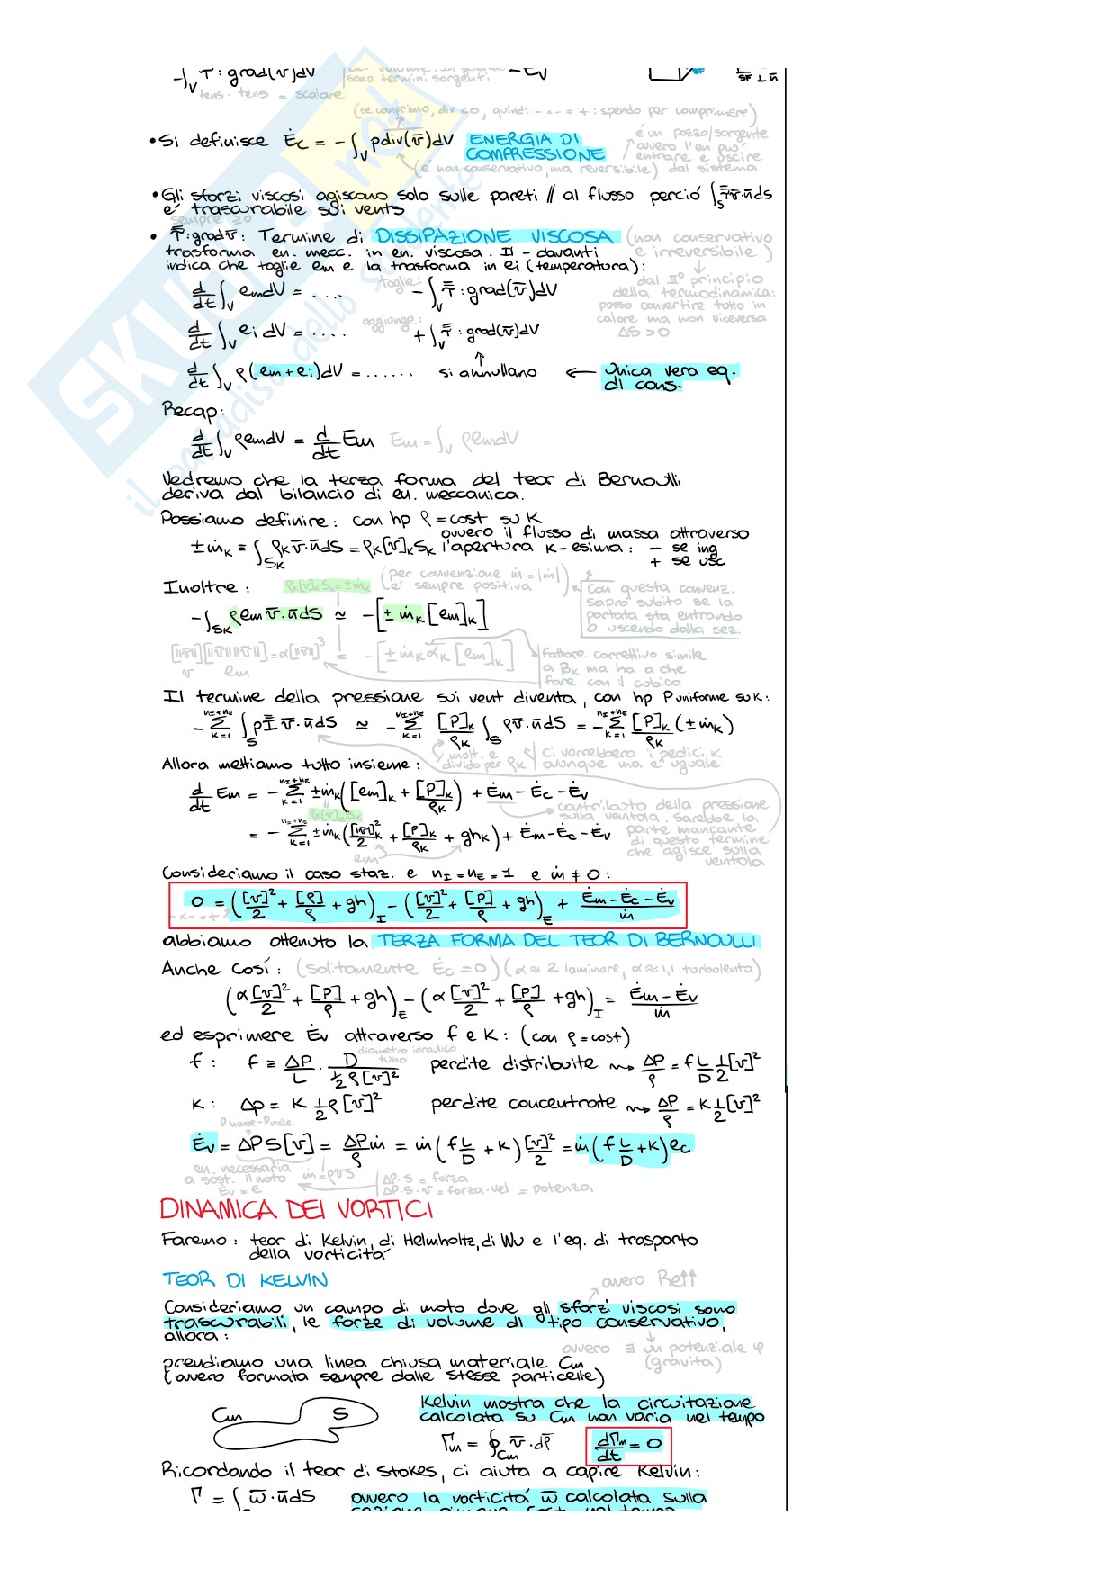 -∫_V τ̿ : grad(v̄)dV
sono termini sorgenti
- Ėv
SF ⊥ n̄
tens · tens = scalare
(se comprimo, div <0, quindi - · - = + : spendo per comprimere)
• Si definisce Ėc = -∫_V pdiv(v̄)dV ENERGIA DI COMPRESSIONE
(è non conservativo, ma reversibile)
è un pozzo/sorgente
ovvero l'en può
entrare e uscire
dal sistema
• Gli sforzi viscosi agiscono solo sulle pareti // al flusso perció ∫_S τ̿ v̄·n̄dS
e' trascurabile sui vents
sempre ≥0
• τ̿:grad v̄ : Termine di DISSIPAZIONE VISCOSA (non conservativo e irreversibile)
trasforma en. mecc. in en. viscosa. Il - davanti
indica che toglie em e la trasforma in ei (temperatura):
dal II° principio
della termodinamica:
posso convertire tutto in
calore ma non viceversa
ΔS > 0
d/dt ∫_V em dV = .... toglie -∫_V τ̿ : grad(v̄)dV
d/dt ∫_V ei dV = .... aggiunge: +∫_V τ̿ : grad(v̄)dV
d/dt ∫_V ρ(em+ei)dV = ...... si annullano ← Unica vera eq. di cons.
Recap:
d/dt ∫_V ρem dV = d/dt Em Em = ∫_V ρem dV
Vedremo che la terza forma del teor di Bernoulli
deriva dal bilancio di en. meccanica.
Possiamo definire: con hp ρ = cost su K
±ṁk = ∫_Sk ρk v̄·n̄dS = ρk[v]k Sk ovvero il flusso di massa attraverso
l'apertura k-esima: - se ing
+ se usc
(per convenzione ṁ = |ṁ|)
e' sempre positiva
Con questa convenz.
saprò subito se la
portata sta entrando
o uscendo dalla sez.
Inoltre: ρk[v]k Sk = ±ṁk
-∫_Sk ρem v̄·n̄dS ≃ -[±ṁk [em]k]
= -[±ṁk αk [em]k]
Fattore correttivo simile
a βk ma ha a che
fare con il cubico
Il termine della pressione sui vent diventa, con hp P uniforme su k:
-Σ_{k=1}^{nI+nE} ∫_S pI̿ v̄·n̄dS ≃ -Σ_{k=1}^{nI+nE} [P]k/ρk ∫_S ρv̄·n̄dS = -Σ_{k=1}^{nI+nE} [P]k/ρk (±ṁk)
molt. e
divido per ρk
ci vorrebbero i pedici k
ovunque ma e' uguale
Allora mettiamo tutto insieme:
d/dt Em = -Σ_{k=1}^{nI+nE} ±ṁk([em]k + [P]k/ρk) + Ėm - Ėc - Ėv
= -Σ_{k=1}^{nI+nE} ±ṁk([v]²k/2 + [P]k/ρk + ghk) + Ėm - Ėc - Ėv
em
contributo della pressione
sulla ventola. Sarebbe la
parte mancante
di questo termine
che agisce sulla
ventola
Consideriamo il caso staz. e nI = nE = 1 e ṁ ≠ 0:
0 = ([v]²/2 + [P]/ρ + gh)_I - ([v]²/2 + [P]/ρ + gh)_E + (Ėm - Ėc - Ėv)/ṁ
abbiamo ottenuto la TERZA FORMA DEL TEOR DI BERNOULLI
Anche Cosí: (solitamente Ėc = 0) (α ≃ 2 laminare, α ≃ 1,1 turbolento)
(α[v]²/2 + [P]/ρ + gh)_E - (α[v]²/2 + [P]/ρ + gh)_I = (Ėm - Ėv)/ṁ
ed esprimere Ėv attraverso f e K: (con ρ = cost)
diametro idraulico
f: f ≡ ΔP/L · D/(½ρ[v]²) perdite distribuite ⇝ ΔP/ρ = f L/D ½[v]²
K: Δp = K ½ρ[v]² perdite concentrate ⇝ ΔP/ρ = K ½[v]²
Ėv = ΔP S[v] = ΔP/ρ ṁ = ṁ(f L/D + K)[v]²/2 = ṁ(f L/D + K)ec
en. necessaria
a sost. il moto
Ėv = e
ṁ = ρvS
ΔP·S = forza
ΔP·S·v = forza·vel = potenza
DINAMICA DEI VORTICI
Faremo: teor di Kelvin, di Helmholtz, di Wu e l'eq. di trasporto
della vorticità
TEOR DI KELVIN
ovvero Re↑↑
Consideriamo un campo di moto dove gli sforzi viscosi sono
trascurabili, le forze di volume di tipo conservativo,
allora:
ovvero ∃ un potenziale φ
(gravita)
prendiamo una linea chiusa materiale Cm
(ovvero formata sempre dalle stesse particelle)
Cm S
Kelvin mostra che la circuitazione
calcolata su Cm non varia nel tempo
Γm = ∮_Cm v̄·dl̄ dΓm/dt = 0
Ricordando il teor di Stokes, ci aiuta a capire Kelvin:
Γ = ∫ ω̄·n̄dS ovvero la vorticitá ω̄ calcolata sulla